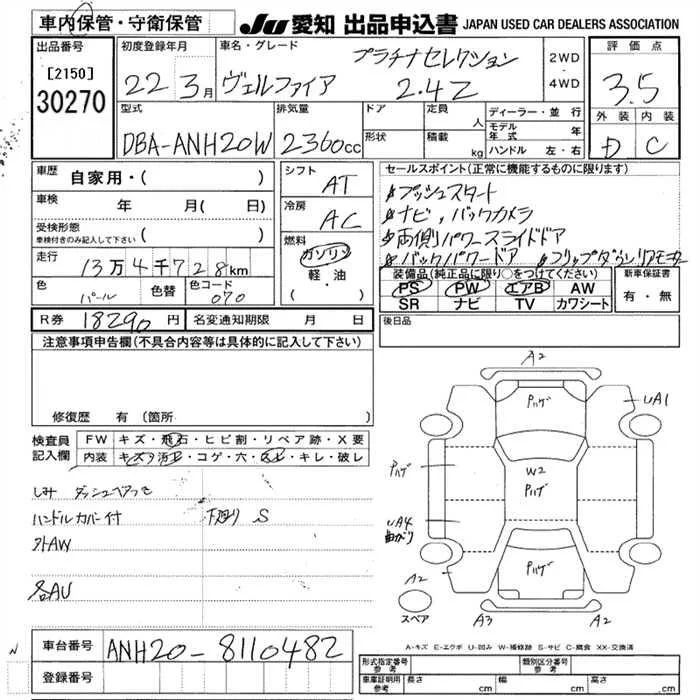 車内保管・守衛保管 JU 愛知 出品申込書 JAPAN USED CAR DEALERS ASSOCIATION
出品番号 初度登録年月 車名・グレード プラチナセレクション 2WD・4WD 評価点
[2150] 30270 22 3月 ヴェルファイア 2.4Z 3.5
型式 排気量 ドア 定員 人 ディーラー・並行 外装 内装
DBA-ANH20W 2360cc 形状 積載 kg モデル年式 年 D C
ハンドル 左・右
車歴 自家用・( ) シフト AT セールスポイント(正常に機能するものに限ります)
車検 年 月( 日) 冷房 AC プッシュスタート
ナビ, バックカメラ
受検形態 車検付きのみ記入して下さい ( ) 燃料 両側パワースライドドア
走行 13万4千728km ガソリン バックパワードア フリップダウンリアモニター
軽・油 装備品(純正品に限り○をつけてください) 新車保証書
色 パール 色替 色コード 070 ( ) PS PW エアB AW 有・無
SR ナビ TV カワシート
R券 18290円 名変通知期限 月 日 後日品
注意事項申告欄(不具合内容等は具体的に記入して下さい)
修復歴 有(箇所 )
検査員記入欄 FW キズ・飛石・ヒビ割・リペア跡・X要
内装 キズ・汚れ・コゲ・穴・スレ・キレ・破レ
しみ ダッシュベタつき
ハンドルカバー付 下廻り S
外AW
各AU
A2
Pハゲ
UA1
Pハゲ
W2
Pハゲ
UA4
曲がり
Pハゲ
A2
スペア
A3 A2
A-キズ E-エクボ U-凹み W-補修跡 S-サビ C-腐食 XX-交換済
N 車台番号 ANH20-8110482
登録番号
形式指定番号 参考 類別区分番号 参考
車庫証明用 参考 長さ cm 幅 cm 高さ cm